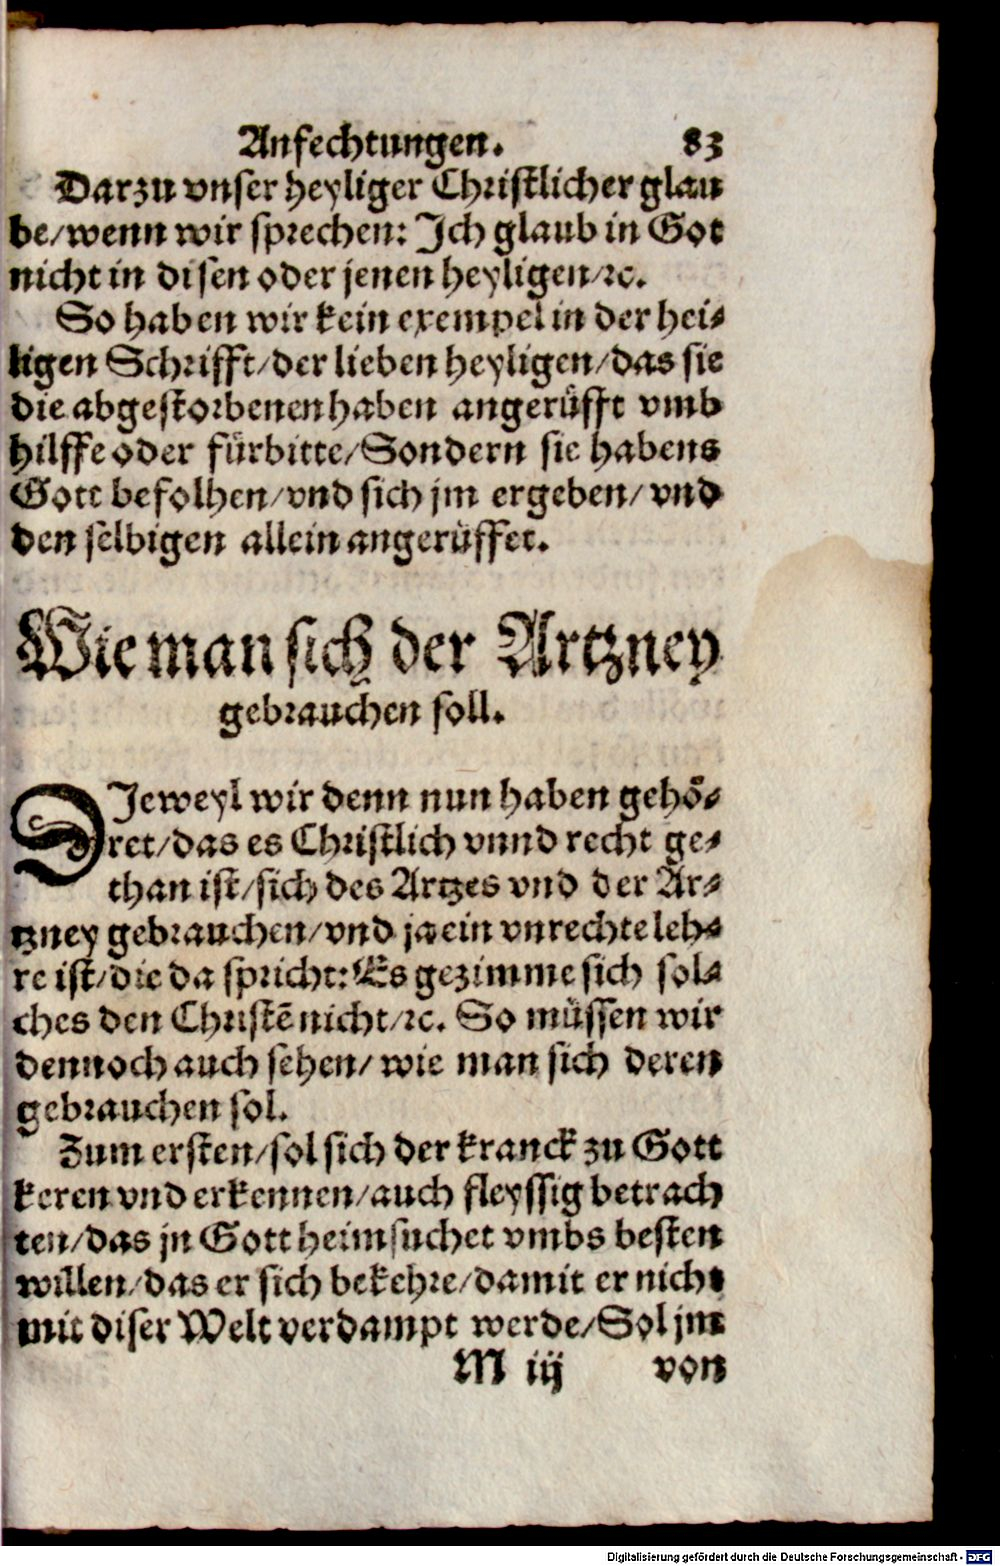 Anfechtungen. 83
Darzu vnser heyliger Christlicher glau
be/wenn wir sprechen: Ich glaub in Got
nicht in disen oder jenen heyligen/ꝛc.
So haben wir kein exempel in der hei⸗
ligen Schrifft/der lieben heyligen/das sie
die abgestorbenen haben angerüfft vmb
hilffe oder fürbitte/Sondern sie habens
Gott befolhen/vnd sich jm ergeben/vnd
den selbigen allein angerüffet.
Wie man sich der Artzney
gebrauchen soll.
DIeweyl wir denn nun haben gehö⸗
ret/das es Christlich vnnd recht ge⸗
than ist/sich des Artzes vnd der Ar⸗
tzney gebrauchen/vnd ja ein vnrechte leh⸗
re ist/die da spricht: Es gezimme sich sol⸗
ches den Christẽ nicht/ꝛc. So müssen wir
dennoch auch sehen/wie man sich deren
gebrauchen sol.
Zum ersten/sol sich der kranck zu Gott
keren vnd erkennen/auch fleyssig betrach
ten/das jn Gott heimsuchet vmbs besten
willen/das er sich bekehre/damit er nicht
mit diser Welt verdampt werde/Sol jm
M iij von
Digitalisierung gefördert durch die Deutsche Forschungsgemeinschaft - DFG